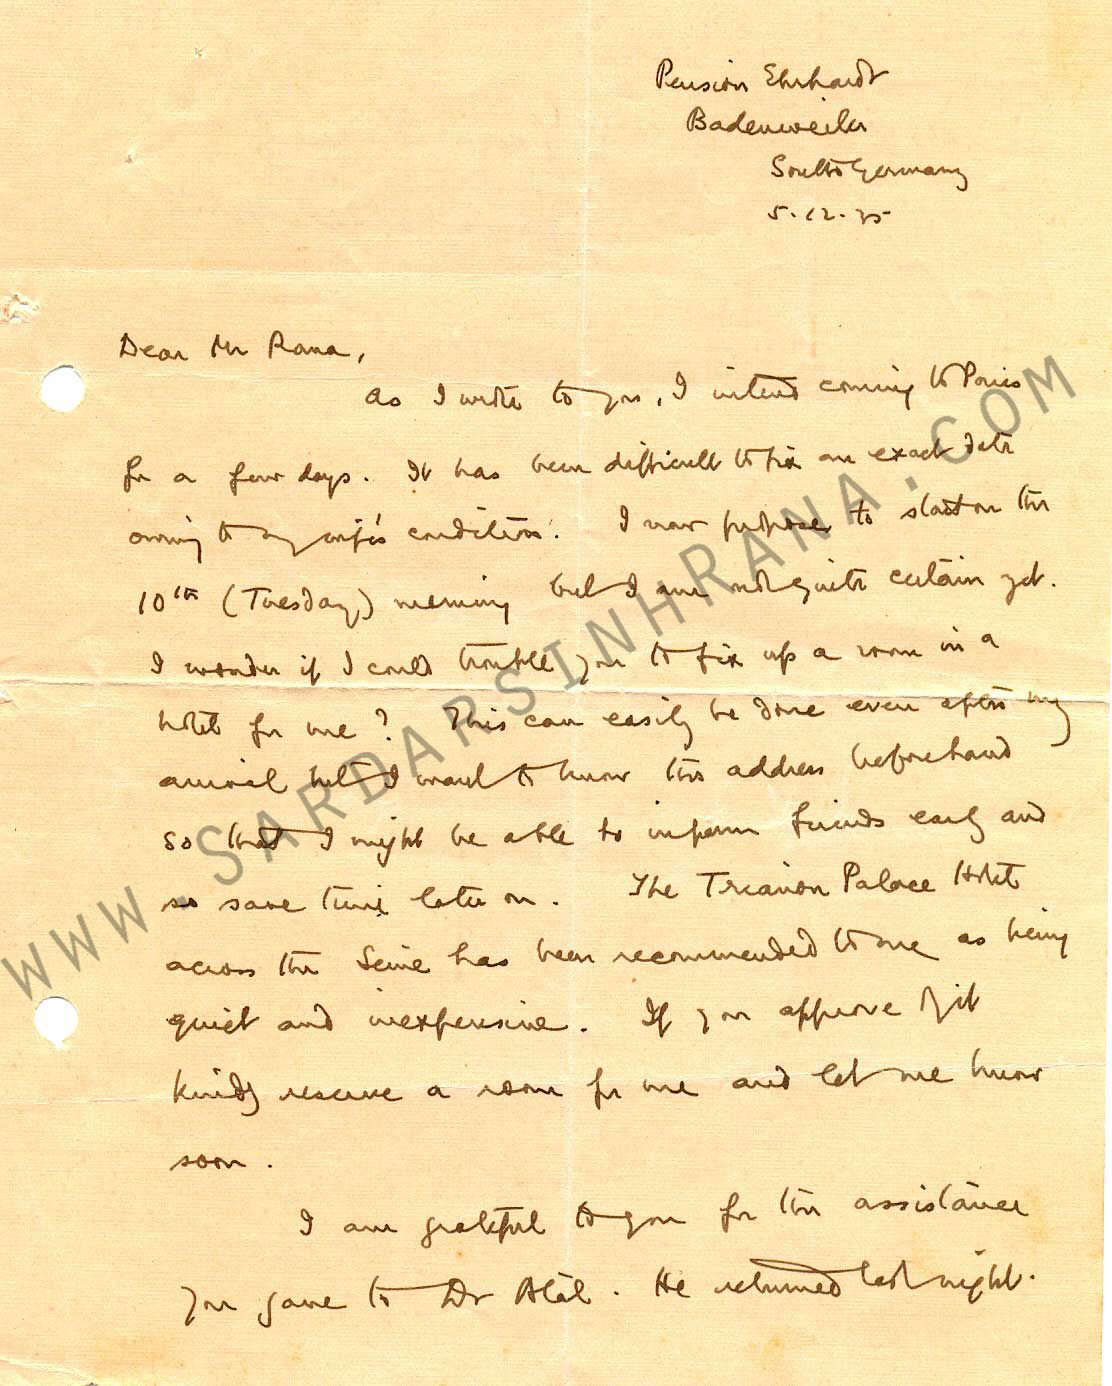 Pension Ehrhardt
Badenweiler
South Germany
5.12.35
Dear Mr Rana,
As I wrote to you, I intend coming to Paris
for a few days. It has been difficult to fix an exact date
owing to my wife's condition. I now propose to start on the
10th (Tuesday) morning but I am not quite certain yet.
I wonder if I could trouble you to fix up a room in a
hotel for me? This can easily be done even after my
arrival but I want to know the address beforehand
so that I might be able to inform friends early and
so save time later on. The Trianon Palace Hotel
across the Seine has been recommended to me as being
quiet and inexpensive. If you approve of it
kindly reserve a room for me and let me know
soon.
I am grateful to you for the assistance
you gave to Dr Atal. He returned last night.
WWW.SARDARSINHRANA.COM